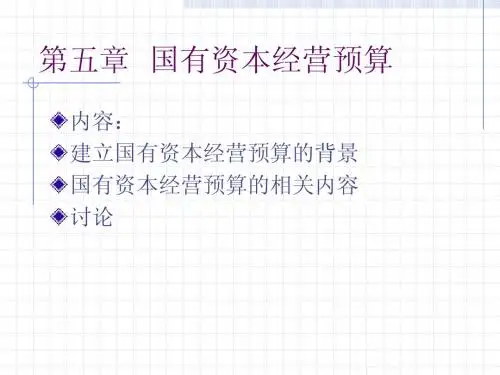 第五章 国有资本经营预算
内容：
建立国有资本经营预算的背景
国有资本经营预算的相关内容
讨论